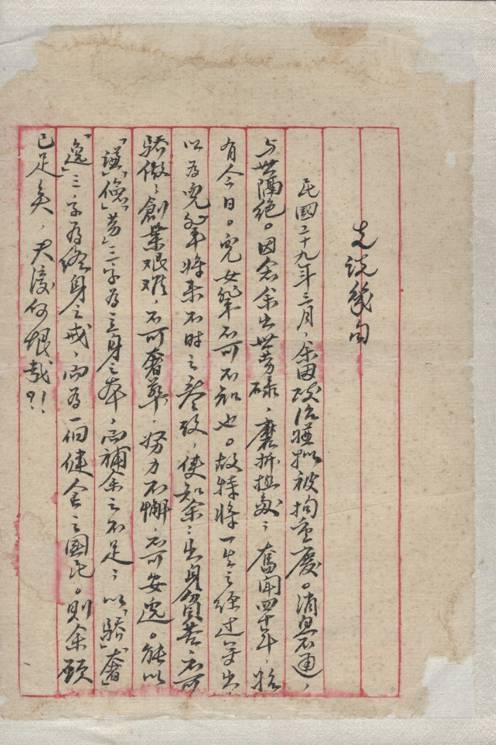 先說幾句
民國二十九年三月，余因政治嫌拟被拘重慶。消息不通，
与世隔絕。因念余出世劳碌，磨折扱，奮闘四十年，始
有今日。兒女輩不可不知也。故特將一生之經过写出
以为兒輩將来不时之參攷，使知余之出身貧苦，不可
驕傲，創業艰难，不可奢華，努力不懈，不可安逸。能以
「謙」「儉」「劳」三字为立身之本，而補余之不足，以「驕」「奢」
「逸」三字为終身之戒，而为一個健全之國民。則余願
已足矣，夫復何恨哉？！